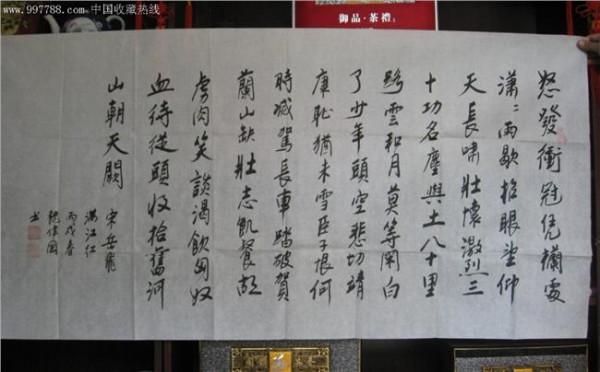 www.997788.com 中国收藏热线
御品·茶禮
怒發衝冠凭欄處
潇〻雨歇抬眼望仰
天長啸壯懷激烈三
十功名塵與土八十里
路雲和月莫等閑白
了少年頭空悲切靖
康恥猶未雪臣子恨何
時滅駕長車踏破賀
蘭山缺壯志飢餐胡
虜肉笑談渴飲匈奴
血待從頭收拾舊河
山朝天闕
宋岳飛
满江红
丙戌春
书